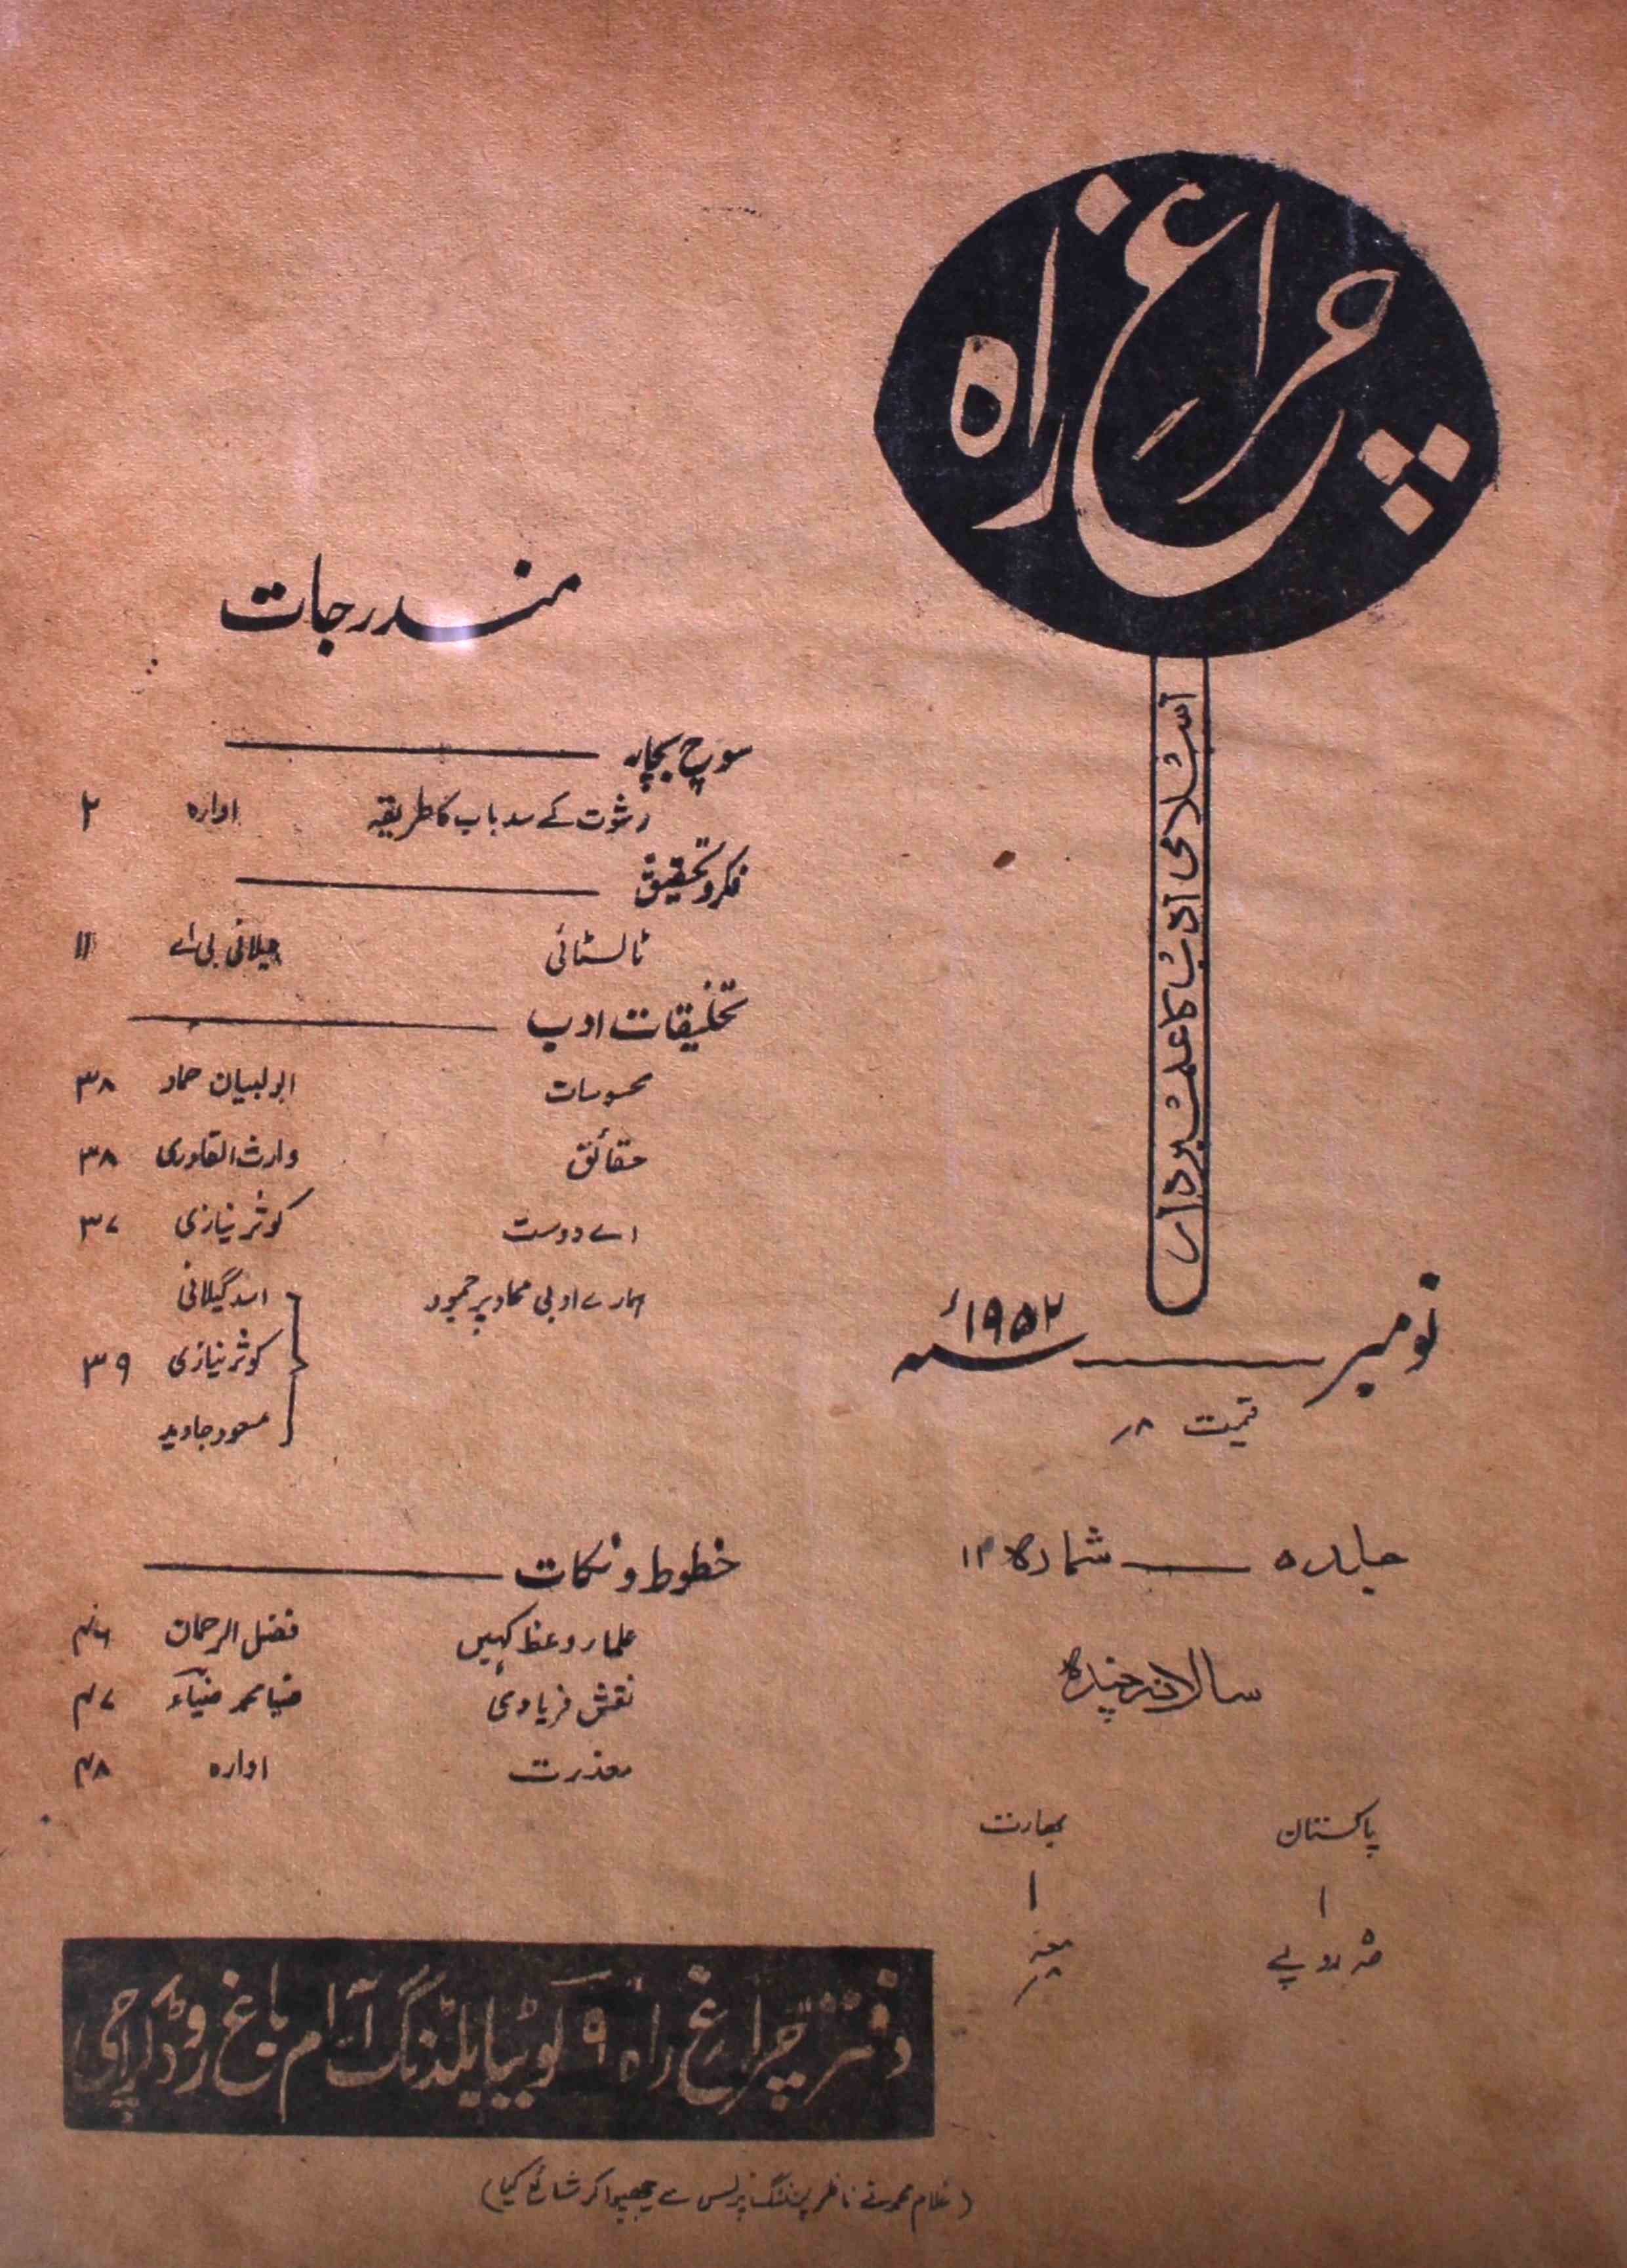 چراغِ راہ
اسلامی ادب کا علمبردار
نومبر ۱۹۵۲ء
قیمت ۸؍
جلد ۵ شمارہ ۱۲
سالانہ چندہ
پاکستان بھارت
روپے
مندرجات
سوچ بچار
رشوت کے سدباب کا طریقہ ادارہ ۲
فکر و تحقیق
ٹالسٹائی جیلانی بی اے ۱۱
تخلیقات ادب
محسوسات ابولبیان حماد ۳۸
حقائق وارث القادری ۳۸
اے دوست کوثر نیازی ۳۷
ہمارے ادبی محاذ پر جمود اسد گیلانی
کوثر نیازی ۳۹
مسعود جاوید
خطوط و نکات
علماء وعظ کہیں فضل الرحمان ۴۶
نقش فریادی ضیا محمد ضیاء ۴۷
معذرت ادارہ ۴۸
دفتر چراغِ راہ ۹ لوٹیا بلڈنگ آرام باغ روڈ کراچی
(غلام محمد نے ناظر پرنٹنگ پریس سے چھپوا کر شائع کیا)